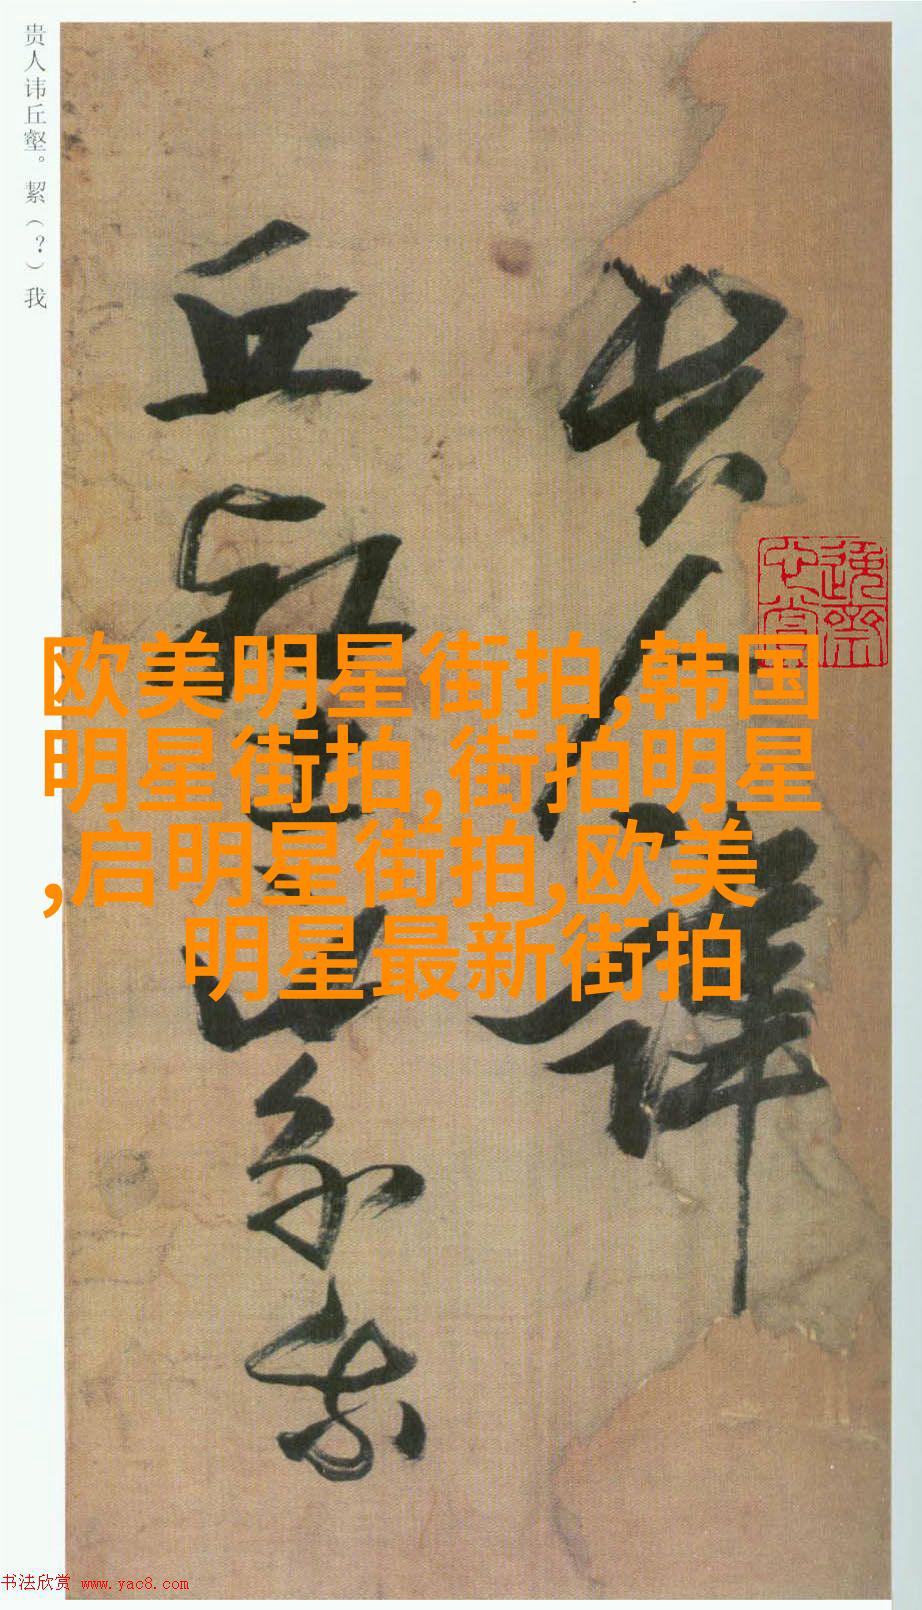 贵人讳丘壑。絜（？）我
贵人讳
丘壑
絜我
欧美明星街拍,韩国
明星街拍,街拍明星
,启明星街拍,欧美
明星最新街拍
书法欣赏 www.yac8.com